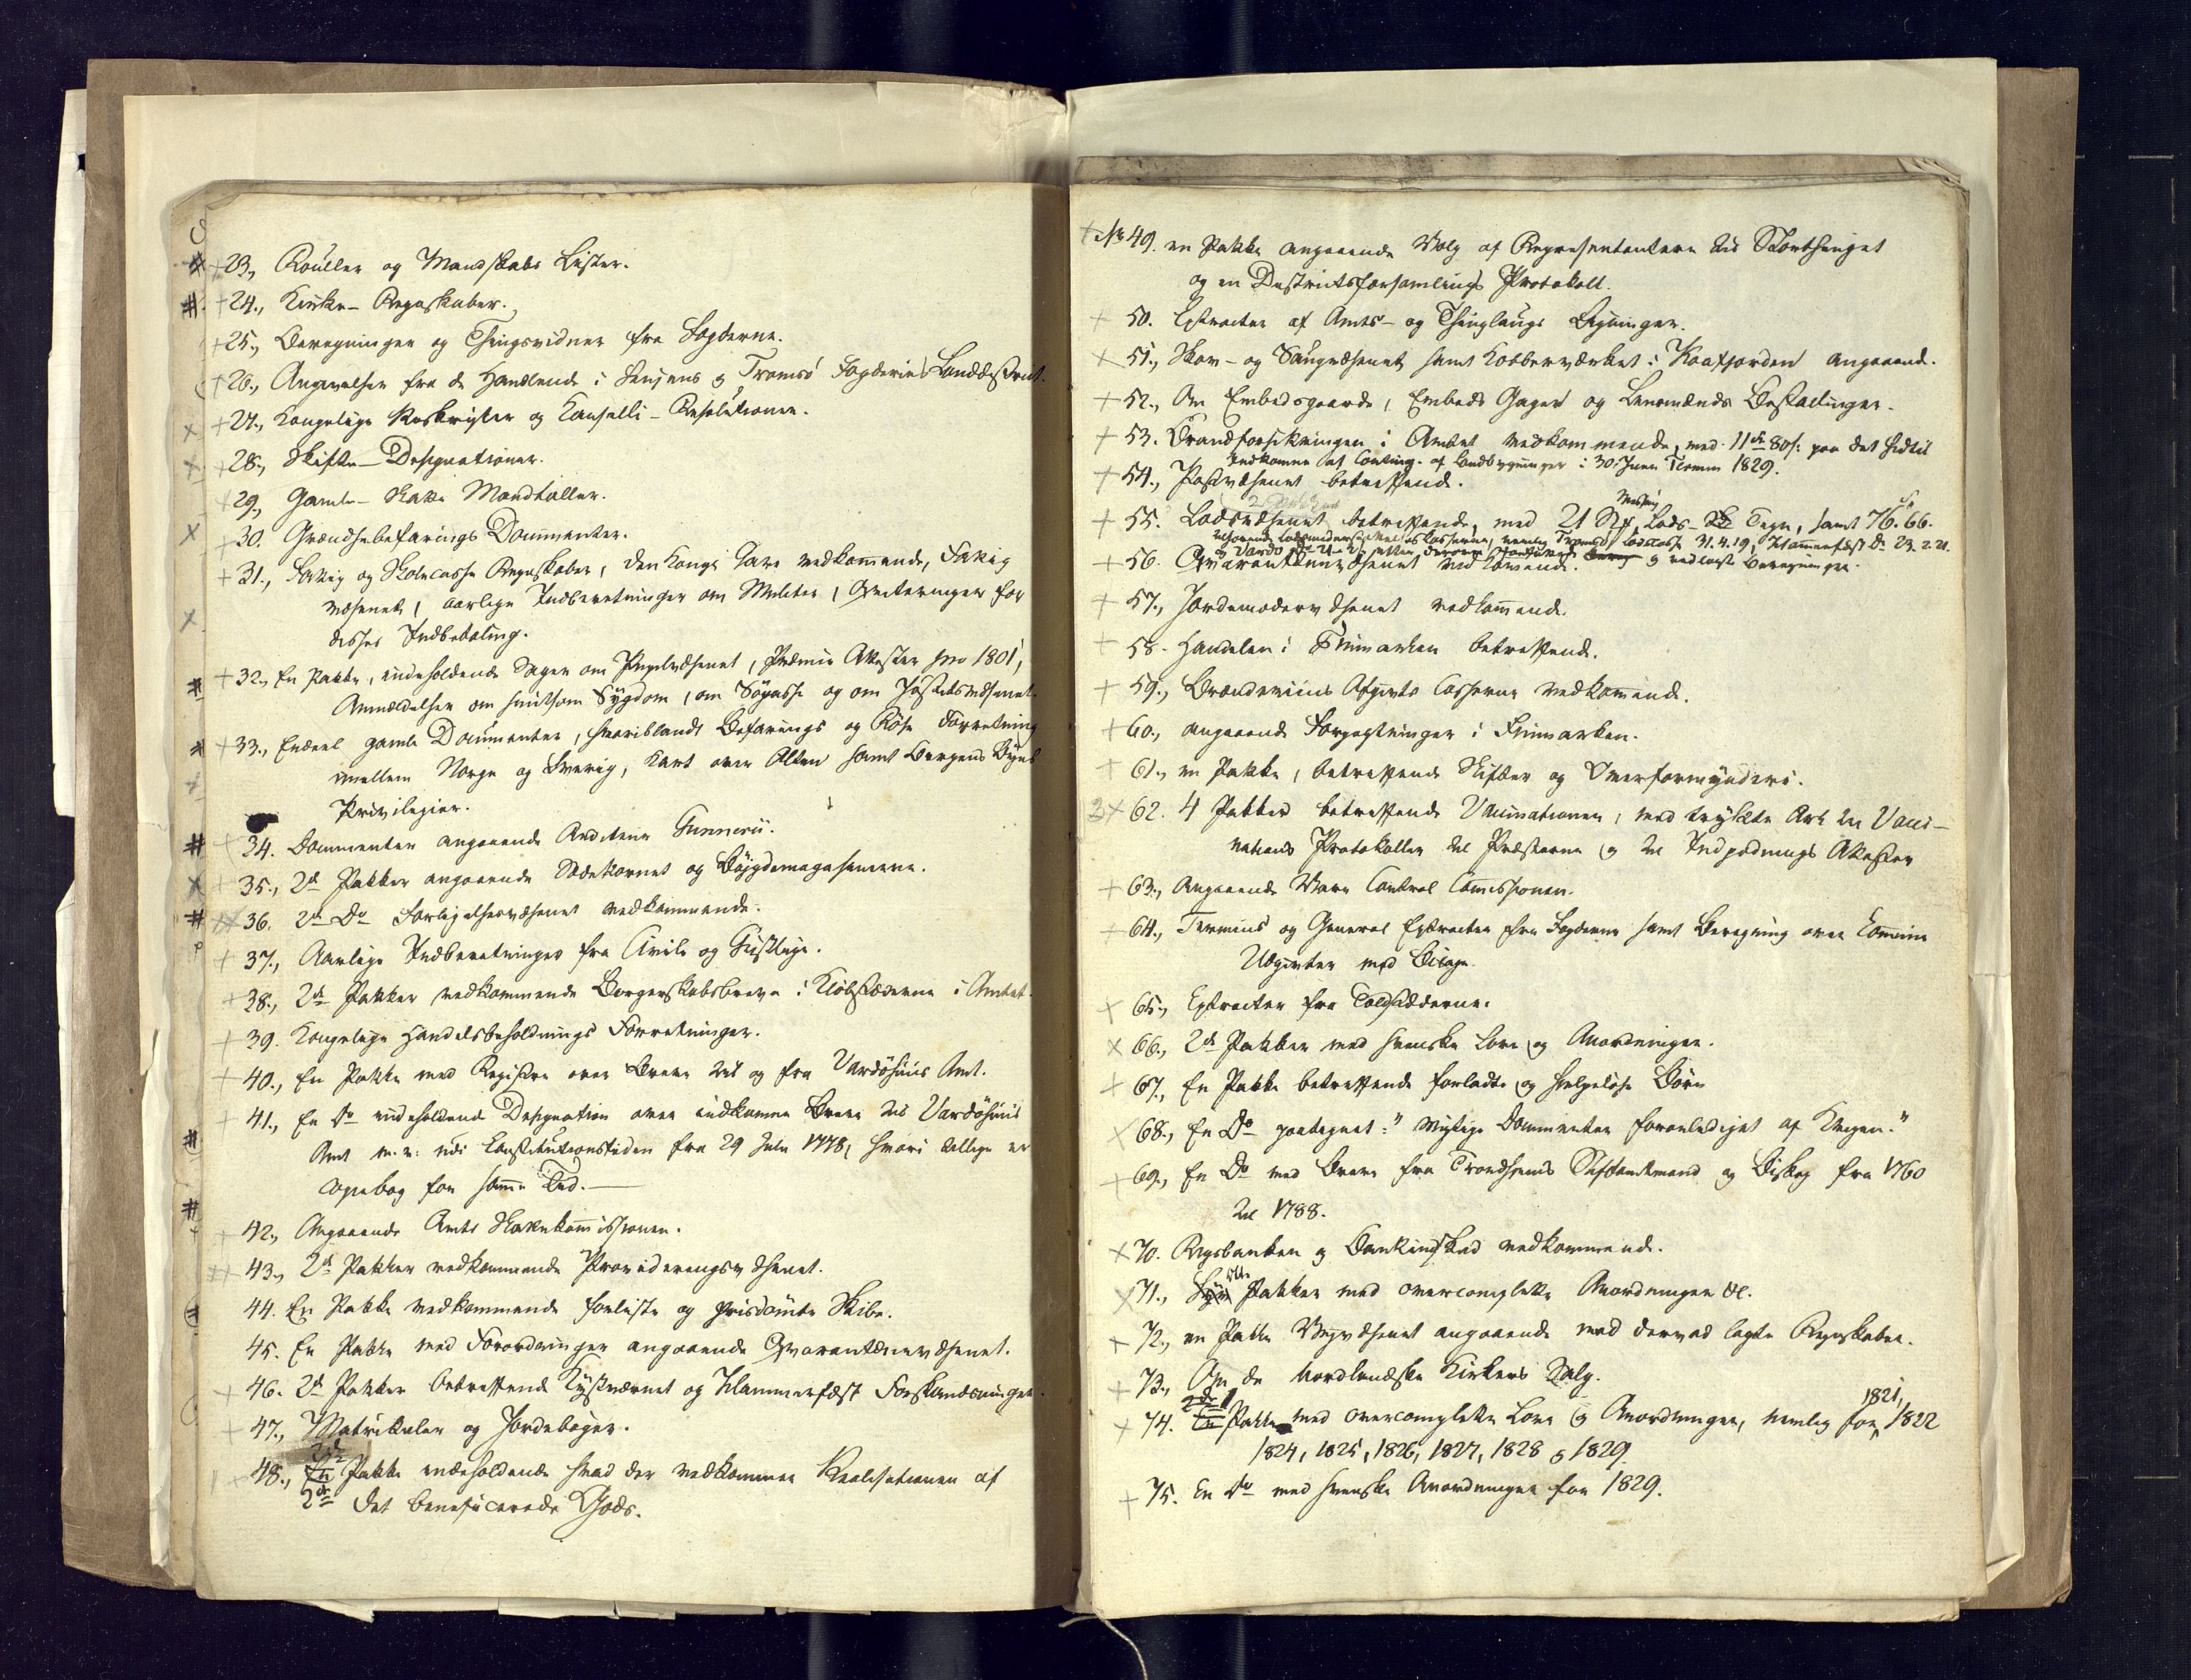 23., Rouller og Mandskabs Lister.
24., Kirke-Regnskaber.
25., Beregninger og Thingsvidner fra Fogderne.
26., Angivelser fra de Handlende i Senjens og Tromsö Fogderier
27., Kongelige Reskripter og Kancelli-Resolutioner.
28., Skifte-Designationer.
29., Gamle-Skatte Mandtaller.
30. Grændsebefarings Documenter.
31., Fattig og Skolecasse Regnskaber, den Kongl: vedkommende, Fattig
væsenet, aarlige Indberetninger om Mulcter, Qviteringer for
disses Indbetaling.
32., En Pakke, indeholdende Sager om Pugelvæsenet, Præmie Attester pro 1801,
Anmeldelser om smitsom Sygdom, om Söpasse og om Justitsvæsenet
33., Endeel gamle Documenter, hvoriblandt Befarings og Röse Forretning
imellem Norge og Sverrig, Kart over Alten samt Bergens Byes
Privilegier.
34. Documenter angaaende Auditeur Gunnerii.
35., 2de Pakker angaaende Sædekornet og Böjgdemagasinerne.
36. 2de Do Forligelsesvæsenet vedkommende.
37., Aarlige Indberetninger fra Civile og Geistlige.
38., 2de Pakker vedkommende Borgerskabsbreve i Kiöbstæderne i Amtet.
39. Kongelige Handelsbeholdnings Forretninger.
40., En Pakke med Registre over Breve til og fra Vardöhuus Amt.
41., En do indeholdende Designation over indkomne Breve til Vardöhuus
Amt m. v: udi Constitutionstiden fra 29 Julii 1778, hvori tillige er
Copiebog for samme Tid.
42., Angaaende Amts Skattekommissionen.
43., 2de Pakker vedkommende Provideringsvæsenet.
44. En Pakke vedkommende forliste og prisdömte Skibe.
45. En Pakke med Forordninger angaaende Qvarantænevæsenet.
46. 2de Pakker betreffende Kystværnet og Hammerfæst Forskandsninger.
47., Matrikuler og Jordebøger.
2de
48., En Pakke indeholdende hvad der vedkommer Realisationen af
2de det beneficerede Gods.
No 49. en Pakke angaaende Valg af Representantere til Storthinget
og en Districtsforsamlings Protokoll.
50. Extracter af Amts- og Thinglaugs Ligninger.
51., Skov- og Saugvæsenet samt Kobberværket i Kaafjorden angaaend.
52., Om Embedsgaarde, Embeds Gager og Lensmænds Bestallinger.
53. Brandforsikringen i Amtet vedkommende, med 11 80 s: paa det hidtil
Indkomne af Conting. af Landbygninger i 30 Juni Termin 1829.
54., Postvæsenet betreffende.
55. Lodsvæsenet betreffende, med 21 Messing Lods-Tegn, samt 76. 66.
nemlig Tromsö Lodscasse 31.4.19, Hammerfæst do 23.2.21.
og Vardö
56. Qvarantænevæsenet vedkommende. og vedlagte Beregninger.
57., Jordemodervæsenet vedkommende.
58. Handelen i Finmarken betreffende.
59., Brænderiens Afgivts Casserne vedkommende.
60., angaaende Forpagtninger i Finmarken.
61., en Pakke, betreffende Skifter og Overformynderi.
62. 4 Pakker betreffende Vaccinationen, med trykte Ark til Vacci-
nations Protokoller til Præsterne og til Indpodnings Attester
63., Angaaende Vare Control Commissionen.
64., Termins og General Extracter fra Fogderne samt Beregning over Comune
Udgivter med Bilage.
65., Extracter fra Toldstæderne.
66., 2de Pakker med svenske Love og Anordninger.
67., En Pakke betreffende forladte og hielpelöse Børn
68., En Do paategnet: "Vigtige Documenter foranlediget af Krigen."
69., En Do med Breve fra Trondhjems Stiftamtmand og Biskop fra 1760
til 1788.
70. Rigsbanken og Bankindskud vedkommende.
71., Syv otte Pakker med overcomplette Anordninger &c.
72., en Pakke Veyvæsenet angaaende med derved lagte Regnskaber.
73., Om de Nordlandske Kirkers Salg.
2de
74. En Pakke med overcomplette Love og Anordninger, nemlig for 1821, 1822
1824, 1825, 1826, 1827, 1828 og 1829.
75. En do med svenske Anordninger for 1829.